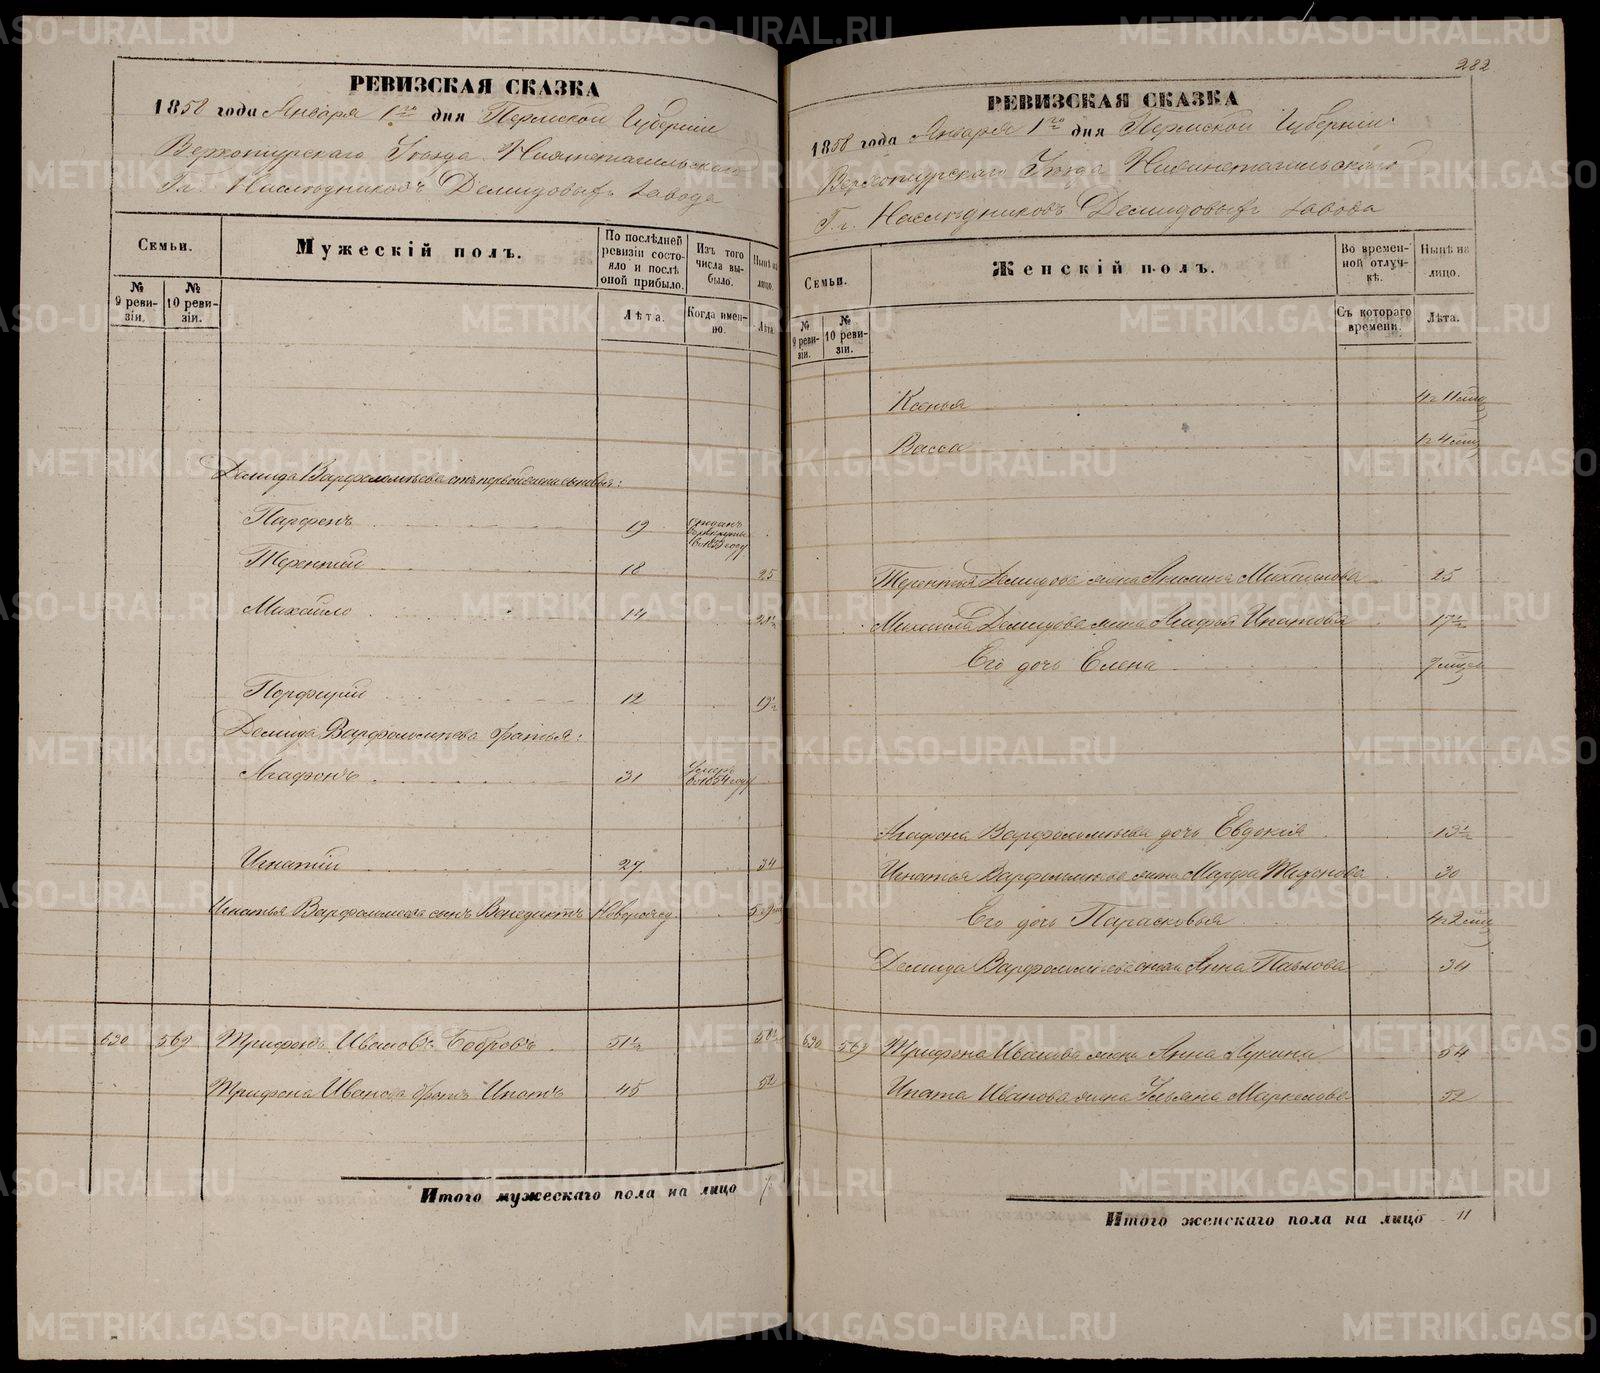 РЕВИЗСКАЯ СКАЗКА
1858 года Января 1го дня Пермской Губернии
Верхотурскаго Уѣзда Нижнетагильскаго
Гг. Наслѣдниковъ Демидовыхъ завода
Семьи.
Мужескій полъ.
По послѣдней ревизіи состояло и послѣ оной прибыло.
Изъ того числа выбыло.
Нынѣ на лицо.
№ 9 ревизіи.
№ 10 ревизіи.
Лѣта.
Когда именно.
Лѣта
Демида Варфоломѣева отъ первой жены сыновья:
Парфенъ 19 въ рекруты въ 1853 году
Терентій 18 25
Михайло 14 21½
Порфирій 12 19½
Демида Варфоломѣева братья:
Агафонъ 31 Умеръ въ 1854 году
Игнатій 27 34
Игнатья Варфоломѣева сынъ Венедиктъ Новорожд.
630 569 Трифонъ Ивановъ Бобровъ 51½ 58½
Трифона Иванова братъ Ипатъ 45 52
Итого мужескаго пола на лицо 7
282
РЕВИЗСКАЯ СКАЗКА
1858 года Января 1го дня Пермской Губерніи
Верхотурскаго Уѣзда Нижнетагильскаго
Гг. Наслѣдниковъ Демидовыхъ завода
Семьи.
Женскій полъ.
Во временной отлучкѣ.
Нынѣ на лицо.
№ 9 ревизіи.
№ 10 ревизіи.
Съ котораго времени.
Лѣта.
Ксенья 4 г 11 мѣц
Васса 1 г 4 мѣц
Терентья Демидова жена Акилина Михайлова 25
Михаила Демидова жена Агафья Ипатова 17½
Его дочь Елена 7 мѣцов
Агафона Варфоломѣева дочь Евдокія 13½
Игнатья Варфоломѣева жена Марфа 30
Его дочь Парасковья 4 г 2 мѣц
Демида Варфоломѣева жена Анна Павлова 34
630 569 Трифона Иванова жена Анна Лукина 54
Ипата Иванова жена Ульяна Маркелова 52
Итого женскаго пола на лицо 11
METRIKI.GASO-URAL.RU